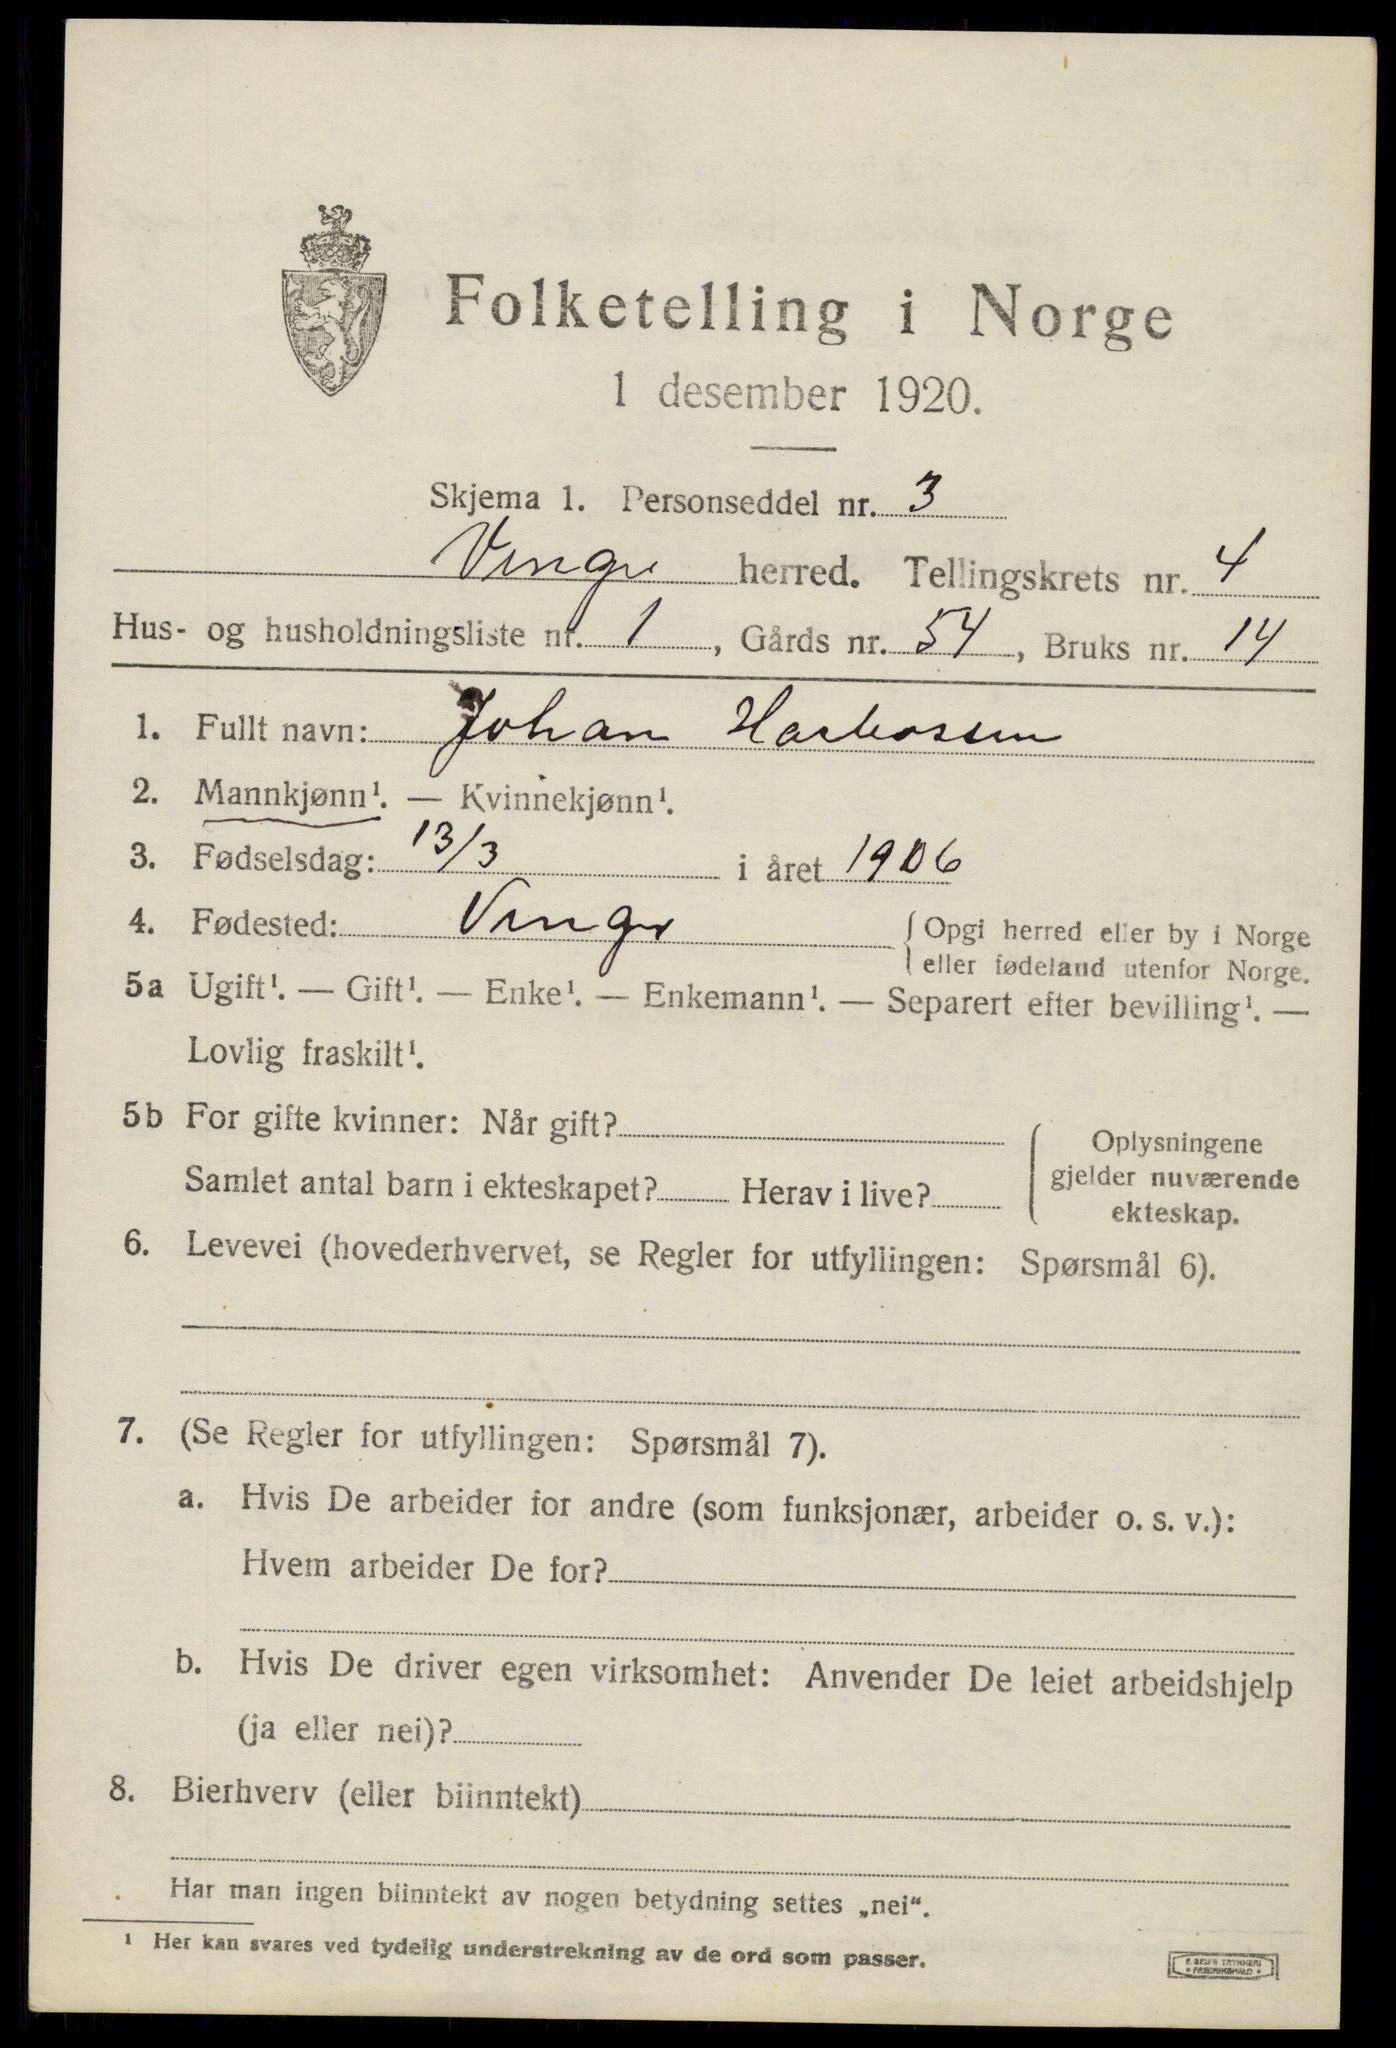 Folketelling i Norge
1 desember 1920.
Skjema 1. Personseddel nr. 3
Vinger herred. Tellingskrets nr. 4
Hus- og husholdningsliste nr. 1, Gårds nr. 54, Bruks nr. 14
1. Fullt navn: Johan
2. Mannkjønn¹. — Kvinnekjønn¹.
3. Fødselsdag: 13/3 i året 1906
4. Fødested: Vinger {Opgi herred eller by i Norge
eller fødeland utenfor Norge.
5a Ugift¹. — Gift¹. — Enke¹. — Enkemann¹. — Separert efter bevilling¹. —
Lovlig fraskilt¹.
5b For gifte kvinner: Når gift?
Samlet antal barn i ekteskapet? Herav i live?
Oplysningene
gjelder nuværende
ekteskap.
6. Levevei (hovederhvervet, se Regler for utfyllingen: Spørsmål 6).
7. (Se Regler for utfyllingen: Spørsmål 7).
a. Hvis De arbeider for andre (som funksjonær, arbeider o. s. v.):
Hvem arbeider De for?
b. Hvis De driver egen virksomhet: Anvender De leiet arbeidshjelp
(ja eller nei)?
8. Bierhverv (eller biinntekt)
Har man ingen biinntekt av nogen betydning settes „nei“.
¹ Her kan svares ved tydelig understrekning av de ord som passer.
E. SEMS TRYKKERI
• FREDRIKSHALD •